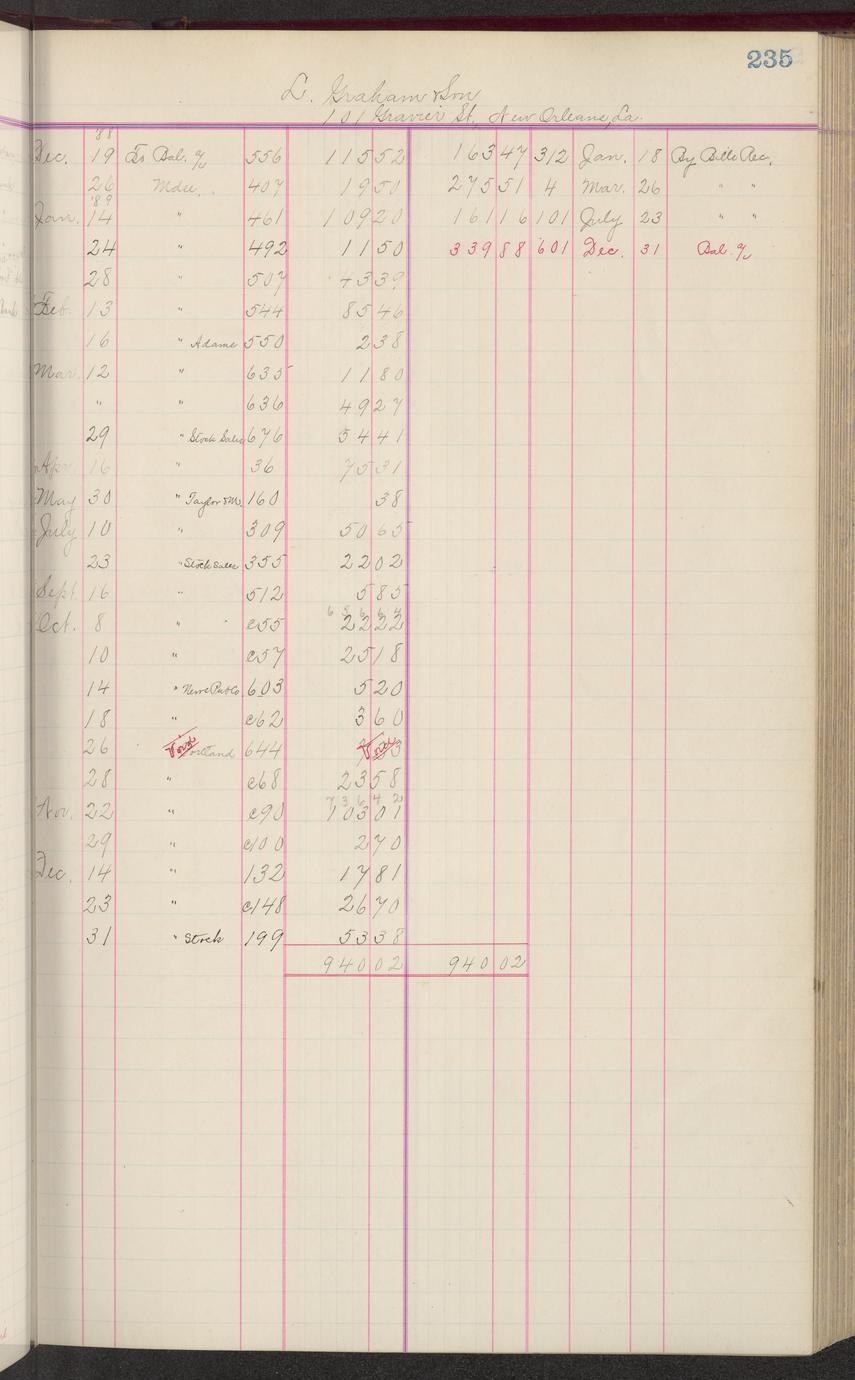 235
L. Graham & Son
101 Gravier St., New Orleans, La.
'88
Dec. 19 To Bal. % 556 115 52 163 47 312 Jan. 18 By Bills Rec.
26 Mdse. 407 19 50 275 51 4 Mar. 26 " "
'89
Jan. 14 " 461 109 20 161 16 101 July 23 " "
24 " 492 11 50 339 88 601 Dec. 31 Bal. %
28 " 507 43 39
Feb. 13 " 544 85 46
16 " Adams 550 2 38
Mar. 12 " 635 11 80
" " 636 49 27
29 " Stock Sales 676 54 41
Apr. 16 " 36 75 31
May 30 " Taylor & M. 160 38
July 10 " 309 50 65
23 " Stock Sales 355 22 02
Sept 16 " 512 5 85
6 5 6 6 4
Oct. 8 " c55 22 22
10 " c57 25 18
14 " 603 5 20
18 " c62 3 60
26 Void 644 Void
28 " c68 23 58
7 3 6 4 2
Nov. 22 " c90 103 01
29 " c100 2 70
Dec. 14 " 132 17 81
23 " c148 26 70
31 " Stock 199 53 38
940 02 940 02